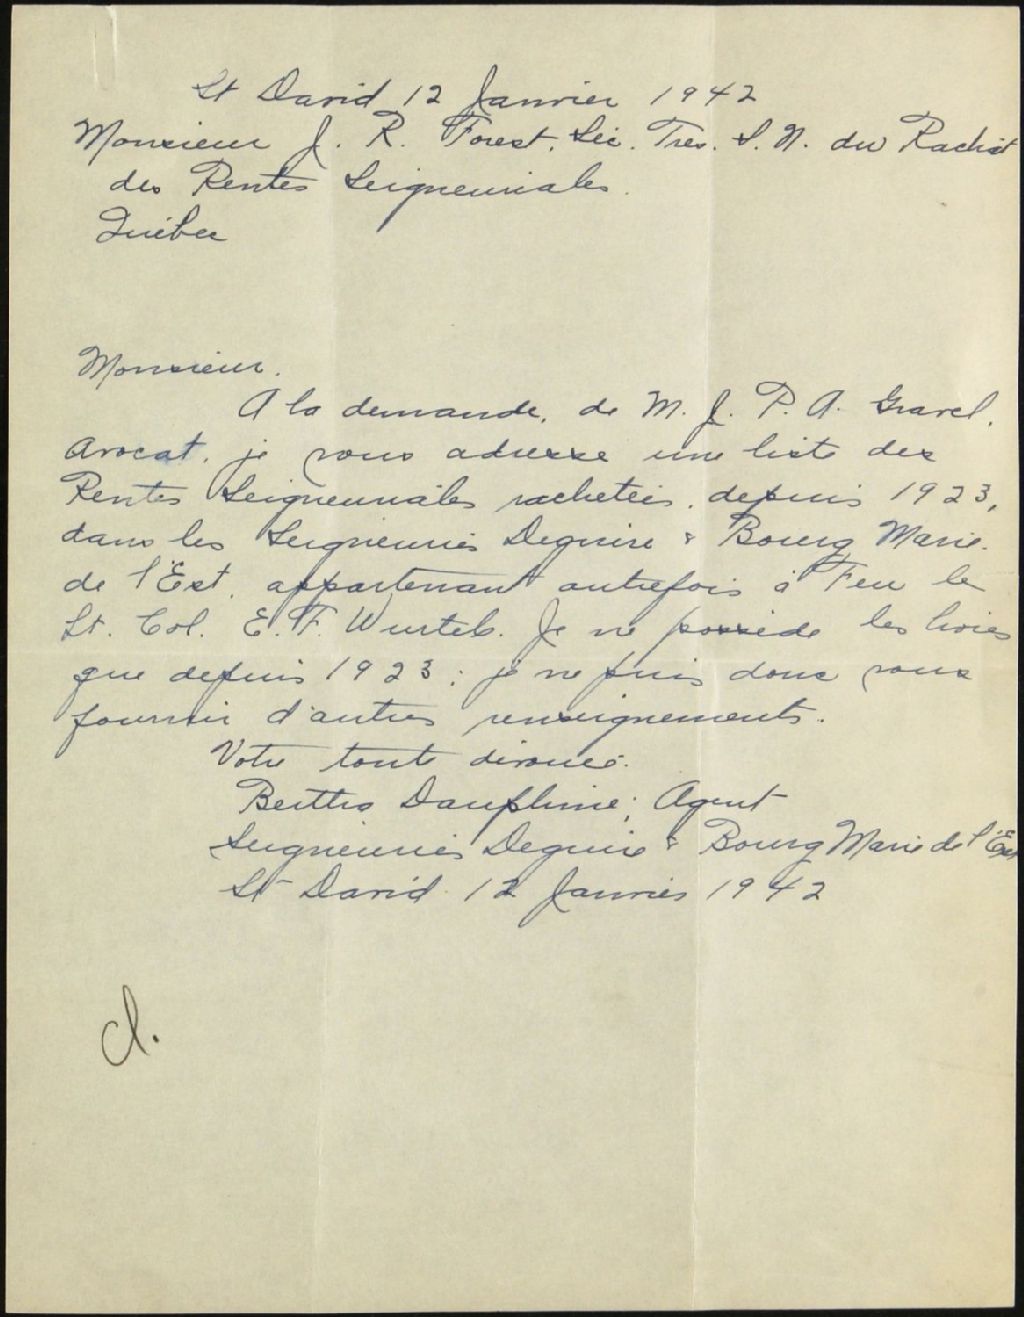 St David 12 Janvier 1942
Monsieur J. R. Forest. Séc. Trés. S. N. du Rachat
des Rentes Seigneuriales.
Québec
Monsieur.
A la demande, de M. J. P. A. Gravel,
Avocat, je vous adresse une liste des
Rentes Seigneuriales rachetées, depuis 1923,
dans les Seigneuries Deguire & Bourg Marie.
de l'Est, appartenant autrefois à Feu le
Lt. Col. E. F. Wurtele. Je ne possède les livres
que depuis 1923; je ne puis donc vous
fournir d'autres renseignements.
Votre toute dévouée.
Berthe Dauphiné; Agent
Seigneuries Deguire & Bourg Marie de l'Est
St David. 12 Janvier 1942